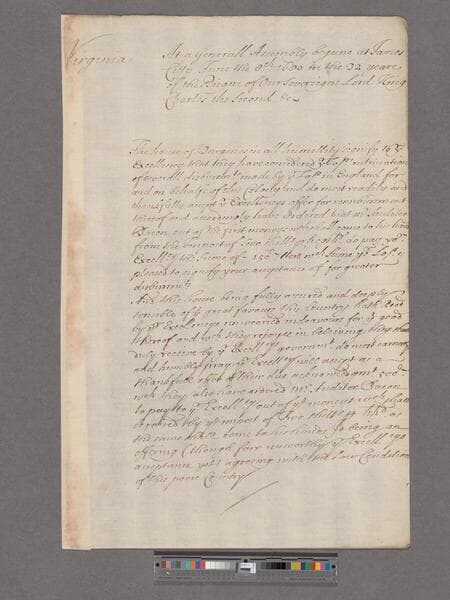 Virginia
At a Generall Assembly begunn at James
City June the 8th 1680 in the 32 yeare
of the Reigne of Our Soveraigne Lord King
Charles the Second &c
The house of Burgesses in all humillity signify to yor
Excellency that they have considered yor Losps intimation
of severall disbursmts made by yor Losp in England for
and on behalfe of this Colony and do most readily and
thankfully accept yor Excellences offer for reimbursment
thereof and accordingly have Ordered that mr Auditor
Bacon out of the first moneys wch shall come to his hands
from the impost of two shills p hhd do pay yor
Excellcy the Sume of 150 wch Sume yor Losp is
pleased to signify your acceptance of for greater
disbursmts
And this house being fully assured and deeply
sensible of ye great favours this Country hath
by yor Excellencys unwearied indeavours for ye good
thereof and wch they rejoyce in beleiving they shall
duly receive by yor Excellcys goverment do most earnestly
and humbly pray yor Excellcy will accept as a
thankfull effect of their due acknowledgmt
wch they also have ordered mr Auditor Bacon
to pay to yor Excellcy out of ye moneys wch shall
be raised by ye impost of two shills p hhd as
the same shall come to his hands, Is being an
offering (though farr unworthy yor Excellcys
acceptance yet) agreeing with the low Condition
of this poore Country